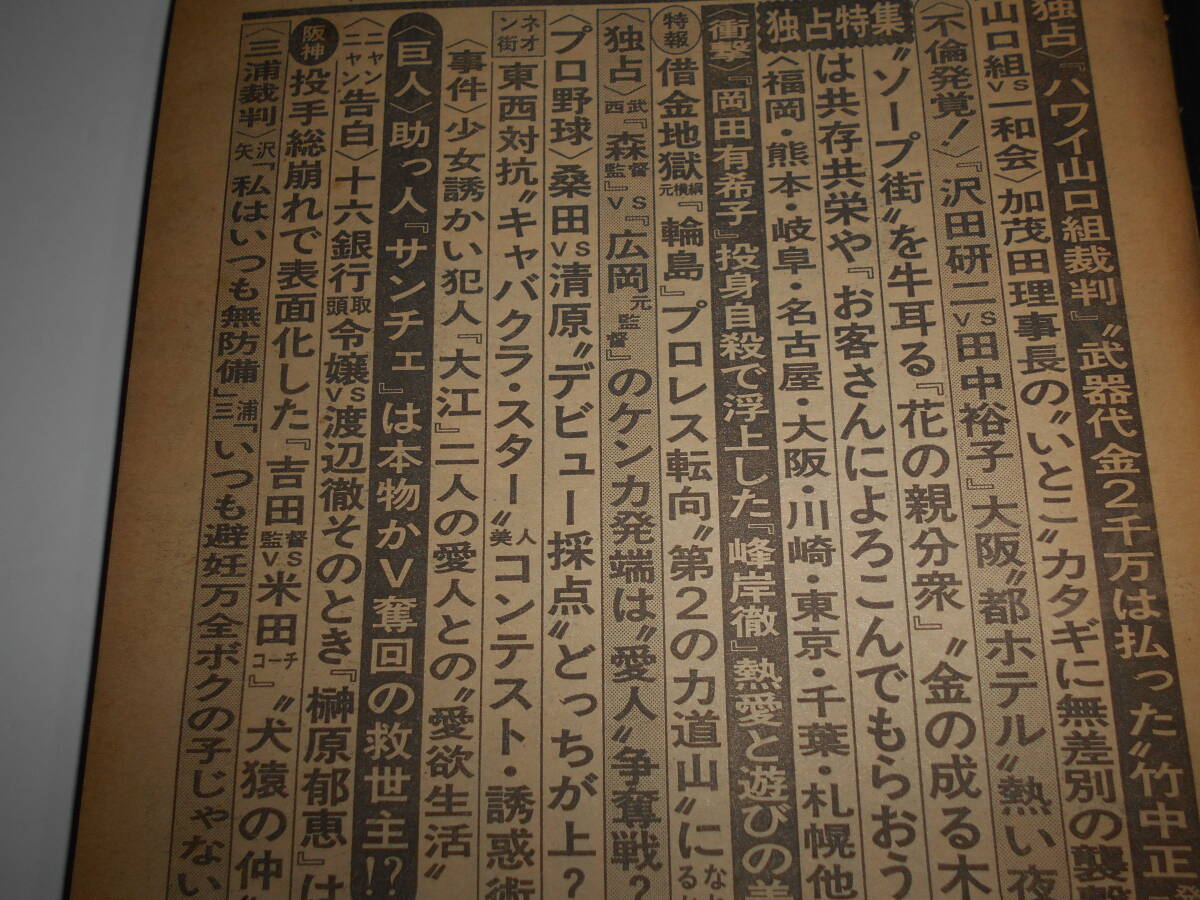 独占〉『ハワイ山口組裁判』〝武器代金2千万は払った〝竹中正
山口組vs一和会〉加茂田理事長の〝いとこ〟カタギに無差別の襲撃
〈不倫発覚!〉『沢田研二vs田中裕子』大阪〝都ホテル〟熱い夜
〝ソープ街〟を牛耳る『花の親分衆』〝金の成る木
独占特集
は共存共栄や『お客さんによろこんでもらおう
〈福岡・熊本・岐阜・名古屋・大阪・川崎・東京・千葉・札幌他
〈衝撃〉『岡田有希子』投身自殺で浮上した『峰岸徹』熱愛と遊びの
特報 借金地獄元横綱『輪島』プロレス転向〝第2の力道山〟になる
〈独占〉西武『森監督』vs『広岡元監督』のケンカ発端は〝愛人〟争奪戦?
〈プロ野球〉桑田vs清原〝デビュー採点〟どっちが上?
ネオン街 東西対抗〝キャバクラ・スター〟美人コンテスト・誘惑術
〈事件〉少女誘かい犯人『大江』二人の愛人との〝愛欲生活〟
〈巨人〉助っ人『サンチェ』は本物かV奪回の救世主!?
ニャンニャン告白〉十六銀行頭取令嬢vs渡辺徹そのとき『榊原郁恵』は
阪神 投手総崩れで表面化した『吉田監督vs米田コーチ』〝犬猿の仲〟
〈三浦裁判〉矢沢「私はいつも無防備」三浦「いつも避妊万全ボクの子じゃない